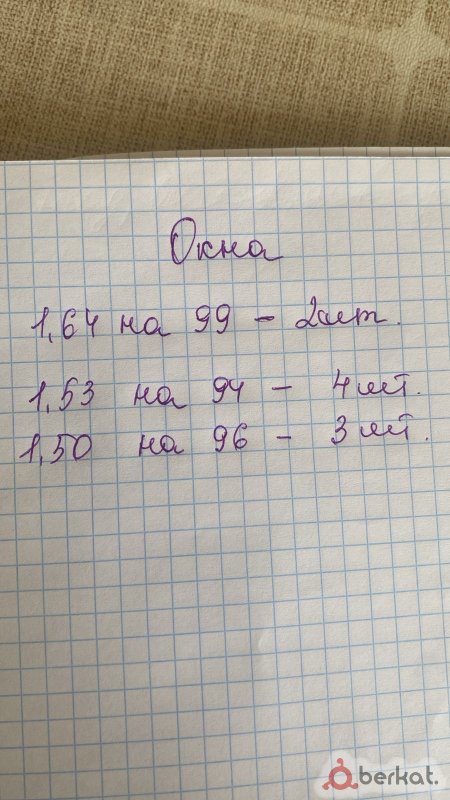 Окна
1,64 на 99 – 2шт.
1,53 на 94 – 4шт.
1,50 на 96 – 3шт.
berkat.